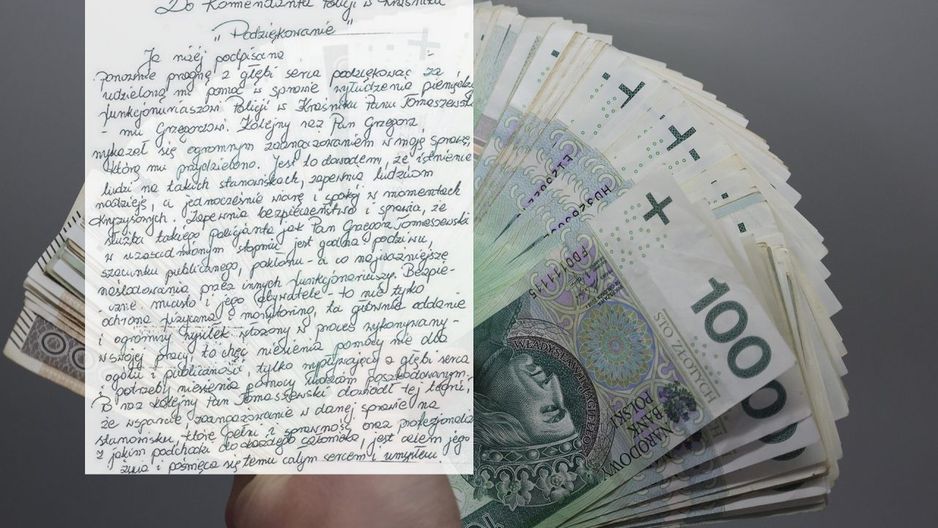 Do Komendanta Policji w Kraśniku
"Podziękowanie"
Ja niżej podpisana
ponownie pragnę z głębi serca podziękować za
udzieloną mi pomoc w sprawie wyłudzenia pieniędzy
funkcjonariuszowi Policji w Kraśniku Panu Tomaszewske-
mu Grzegorzowi. Kolejny raz Pan Grzegorz
wykazał się ogromnym zaangażowaniem w moją sprawę
którą mu przydzielono. Jest to dowodem, że istnienie
ludzi na takich stanowiskach, zapewnia ludziom
nadzieję, a jednocześnie wiarę i spokój w momentach
kryzysowych. Zapewnia bezpieczeństwo i sprawia, że
służba takiego policjanta jak Pan Grzegorz Tomaszewski
w wzasadnionym stopniu jest godna podziwu,
szacunku publicznego, pokłonu - a co najważniejsze
naśladowania przez innych funkcjonariuszy. Bezpie-
czne miasto i jego obywatele - to nie tylko
ochrona fizyczna i monitoring, to głównie oddanie
i ogromny wysiłek włożony w proces wykonywany -
w swojej pracy, to chęć niesienia pomocy nie dla
ogółu i publiczności, tylko wypływający z głębi serca
z potrzeby niesienia pomocy ludziom poszkodowanym.
Po raz kolejny Pan Tomaszewski dowiódł tej tezy,
że wsparcie zaangażowanie w danej sprawie na
stanowisku, które pełni i sprawność oraz profesjonalizm
z jakim podchodzi do każdego człowieka, jest celem jego
życia i poświęca się temu całym sercem i umysłem.
100
ZŁOTYCH
STO
NARODOWY
BANK
POLSKI
WŁADYSŁAW II JAGIEŁŁO
FD0111115